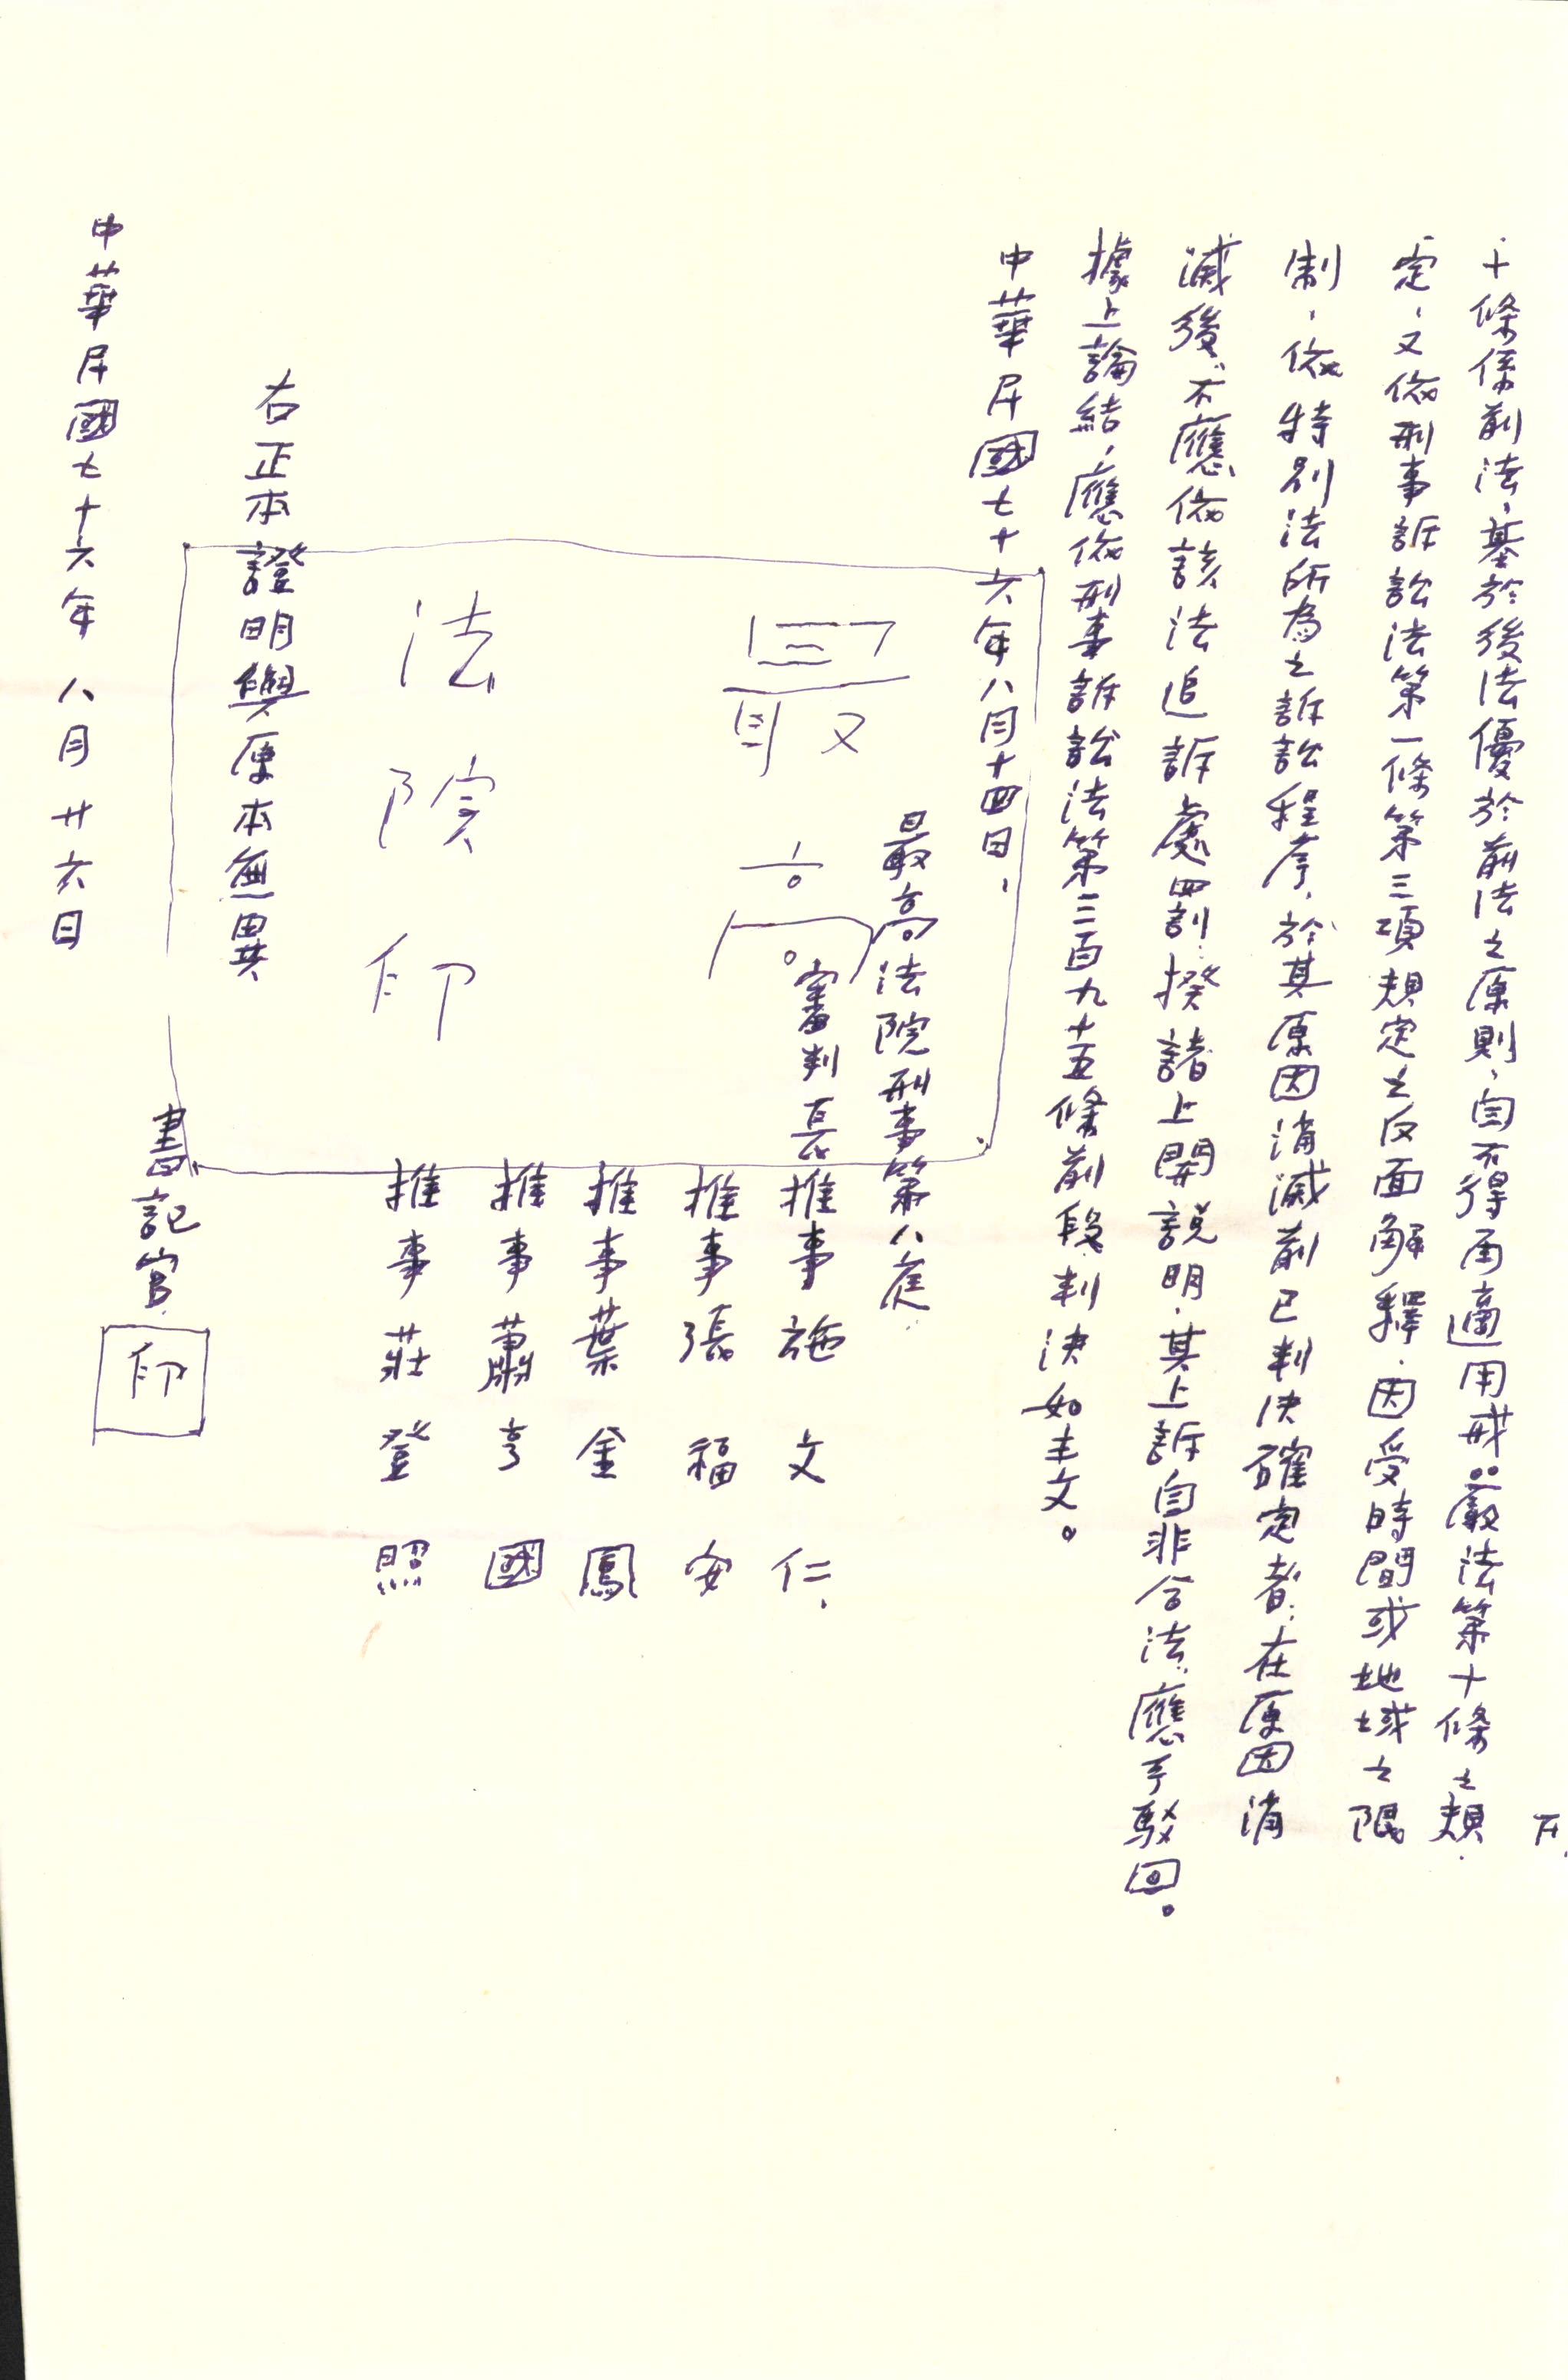 十條係前法,基於後法優於前法之原則,自不得再適用戒嚴法第十條之規
定,又依刑事訴訟法第一條第三項規定之反面解釋,因受時間或地域之限
制,依特別法所為之訴訟程序,於其原因消滅前已判決確定者,在原因消
滅後,不應依該法追訴處罰,揆諸上開說明,其上訴自非合法,應予駁回。
據上論結,應依刑事訴訟法第三百九十五條前段,判決如主文。
中華民國七十六年八月十四日、
最高法院刑事第八庭
審判長推事施文仁
推事張福安
推事葉金鳳
推事蕭亨國
推事莊登照
最高
法院印
右正本證明與原本無異
書記官
印
中華民國七十六年八月廿六日